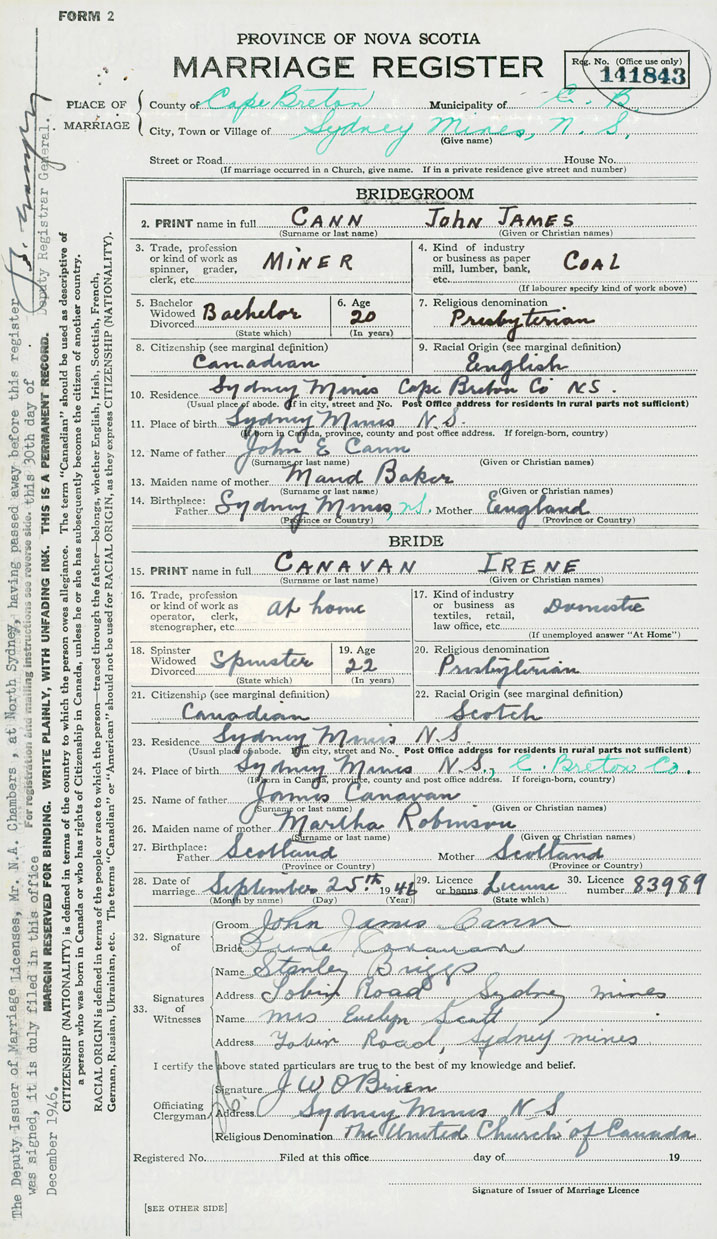 FORM 2
PROVINCE OF NOVA SCOTIA
MARRIAGE REGISTER
Reg. No. (Office use only)
141843
PLACE OF MARRIAGE
County of Cape Breton Municipality of C. B.
City, Town or Village of Sydney Mines, N. S.
(Give name)
Street or Road House No.
(If marriage occurred in a Church, give name. If in a private residence give street and number)
BRIDEGROOM
2. PRINT name in full CANN JOHN JAMES
(Surname or last name) (Given or Christian names)
3. Trade, profession or kind of work as spinner, grader, clerk, etc. MINER
4. Kind of industry or business as paper mill, lumber, bank, etc. COAL
(If labourer specify kind of work above)
5. Bachelor Widowed Divorced Bachelor
(State which)
6. Age 20
(In years)
7. Religious denomination
Presbyterian
8. Citizenship (see marginal definition)
Canadian
9. Racial Origin (see marginal definition)
English
10. Residence Sydney Mines Cape Breton Co N.S.
(Usual place of abode. If in city, street and No. Post Office address for residents in rural parts not sufficient)
11. Place of birth Sydney Mines N.S.
(If born in Canada, province, county and post office address. If foreign-born, country)
12. Name of father John E Cann
(Surname or last name) (Given or Christian names)
13. Maiden name of mother Maud Baker
(Surname or last name) (Given or Christian names)
14. Birthplace: Father Sydney Mines, N.S. Mother England
(Province or Country) (Province or Country)
BRIDE
15. PRINT name in full CANAVAN IRENE
(Surname or last name) (Given or Christian names)
16. Trade, profession or kind of work as operator, clerk, stenographer, etc. at home
17. Kind of industry or business as textiles, retail, law office, etc. Domestic
(If unemployed answer "At Home")
18. Spinster Widowed Divorced Spinster
(State which)
19. Age 22
(In years)
20. Religious denomination
Presbyterian
21. Citizenship (see marginal definition)
Canadian
22. Racial Origin (see marginal definition)
Scotch
23. Residence Sydney Mines N.S.
(Usual place of abode. If in city, street and No. Post Office address for residents in rural parts not sufficient)
24. Place of birth Sydney Mines N.S., C. Breton Co.
(If born in Canada, province, county and post office address. If foreign-born, country)
25. Name of father James Canavan
(Surname or last name) (Given or Christian names)
26. Maiden name of mother Martha Robinson
(Surname or last name) (Given or Christian names)
27. Birthplace: Father Scotland Mother Scotland
(Province or Country) (Province or Country)
28. Date of marriage September 25th 1946
(Month by name) (Day) (Year)
29. Licence or banns License
(State which)
30. Licence number 83989
32. Signature of
Groom John James Cann
Bride Irene Canavan
33. Signatures of Witnesses
Name Stanley Briggs
Address Tobin Road Sydney mines
Name Mrs Evelyn Scott
Address Tobin Road, Sydney mines
I certify the above stated particulars are true to the best of my knowledge and belief.
Officiating Clergyman
Signature J W O'Brien
Address Sydney Mines N S
Religious Denomination The United Church of Canada
Registered No. Filed at this office day of 19
Signature of Issuer of Marriage Licence
[SEE OTHER SIDE]
The Deputy Issuer of Marriage Licenses, Mr. N.A. Chambers, at North Sydney, having passed away before this register
was signed, it is duly filed in this office this 30th day of
December 1946.
Deputy Registrar General.
For registration and mailing instructions see reverse side.
MARGIN RESERVED FOR BINDING. WRITE PLAINLY, WITH UNFADING INK. THIS IS A PERMANENT RECORD.
CITIZENSHIP (NATIONALITY) is defined in terms of the country to which the person owes allegiance. The term "Canadian" should be used as descriptive of
a person who was born in Canada or who has rights of Citizenship in Canada, unless he or she has subsequently become the citizen of another country.
RACIAL ORIGIN is defined in terms of the people or race to which the person—traced through the father—belongs, whether English, Irish, Scottish, French,
German, Russian, Ukrainian, etc. The terms "Canadian" or "American" should not be used for RACIAL ORIGIN, as they express CITIZENSHIP (NATIONALITY).